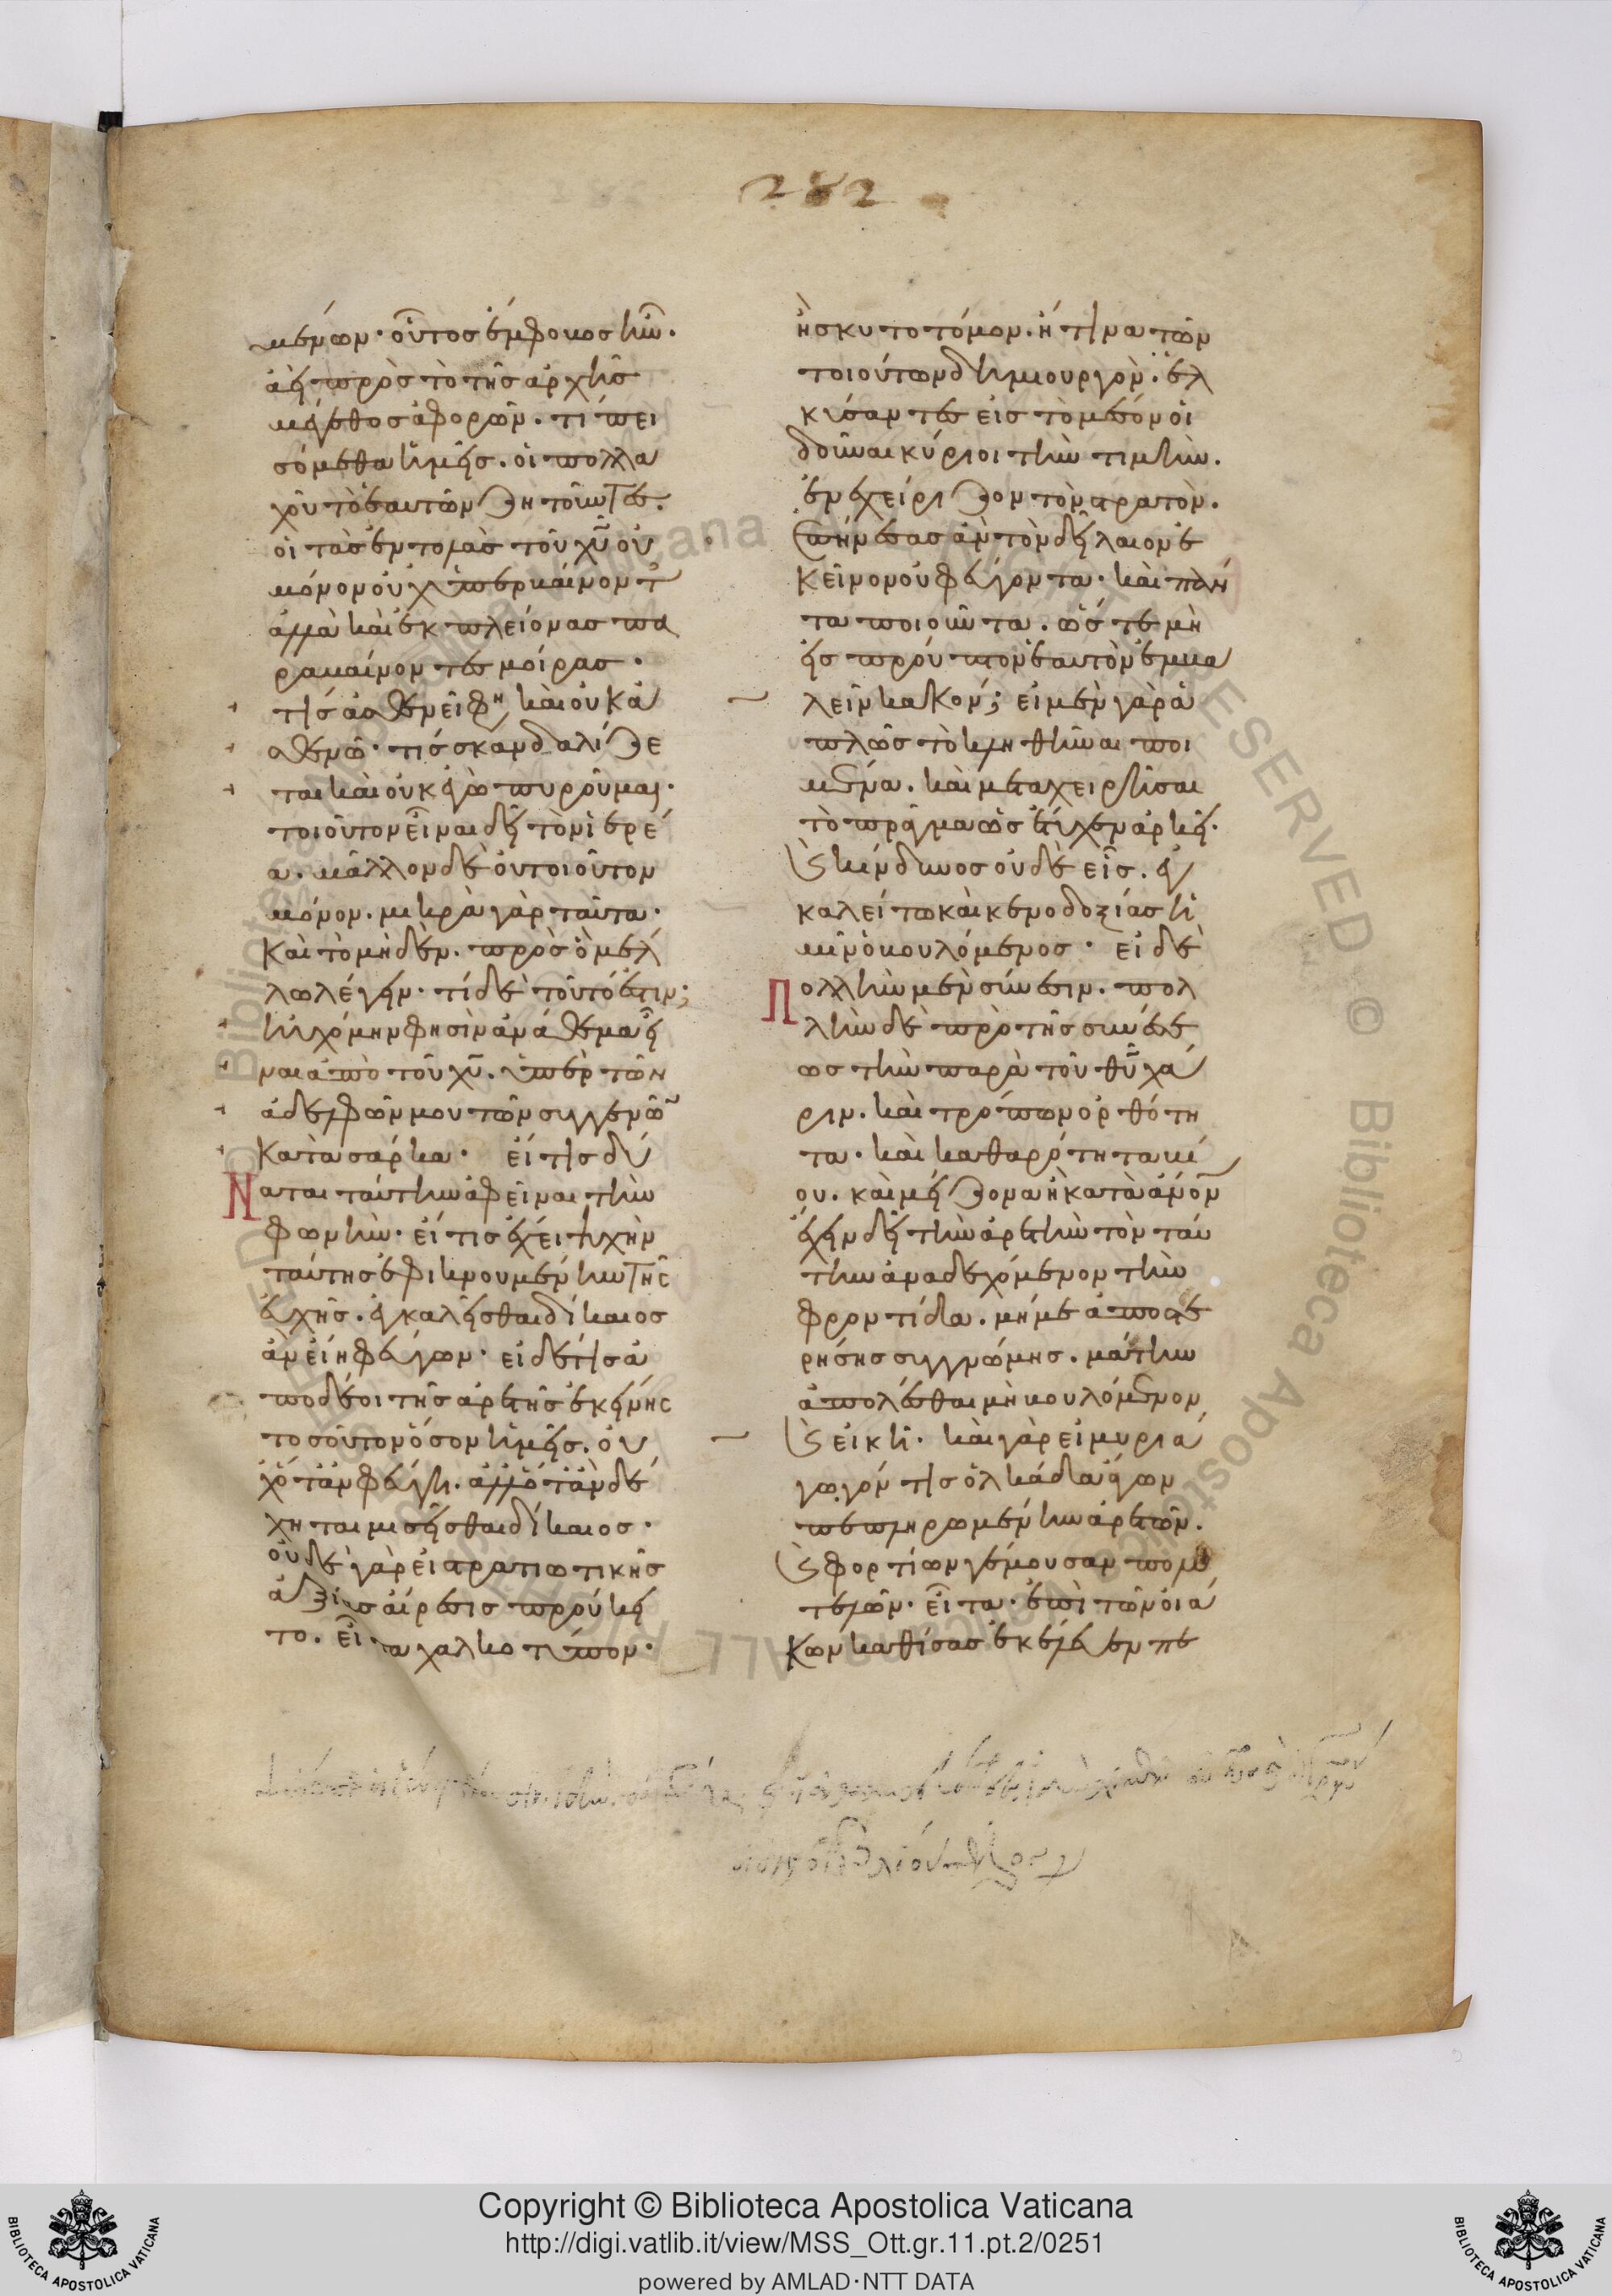 282
μένων· οὗτος ἔμφοβος ἦν·
ἀεὶ πρὸς τὸ τῆς ἀρχῆς
μέγεθος ἀφορῶν· τί πει
σόμεθα ἡμεῖς· οἱ πολλα
χοῦ τὸ ἑαυτῶν ζητοῦντες·
οἱ τὰς ἐντολὰς τοῦ χυ οὐ
μόνον οὐχ ὑπερβαίνοντ
ἀλλὰ καὶ ἐκ πλείονος πα
ραβαίνοντες μοίρας·
τίς ἀσθενεῖ φη, καὶ οὐκ ἀ
σθενῶ· τίς σκανδαλίζε
ται καὶ οὐκ ἐγὼ πυροῦμαι·
τοιοῦτον εἶναι δεῖ τὸν ἱερέ
α· μᾶλλον δὲ οὐ τοιοῦτον
μόνον· μικρὰ γὰρ ταῦτα·
καὶ τὸ μηδὲν· πρὸς ὃ μέλ
λω λέγειν· τί δὲ τοῦτό ἐστιν;
ηὐχόμην φησὶν ἀνάθεμα εἶ
ναι ἀπὸ τοῦ χυ· ὑπὲρ τῶν
ἀδελφῶν μου τῶν συγγενῶ
κατὰ σάρκα· εἴ τις δύ
Ναται ταύτην ἀφεῖναι τὴν
φωνήν· εἴ τις ἔχει ψυχὴν
ταύτης ἐφικνουμένην τῆς
εὐχῆς· ἐγκαλεῖσθαι δίκαιος
ἂν εἴη φεύγων· εἰ δέ τις ἀ
ποδέοι τῆς ἀρετῆς ἐκείνης
τοσοῦτον ὅσον ἡμεῖς· οὐ
χ ὅταν φεύγῃ· ἀλλ' ὅταν δέ
χηται μισεῖσθαι δίκαιος·
οὐδὲ γὰρ εἰ στρατιωτικῆς
ἀξίας αἵρεσις προύκει
το· εἶτα χαλκοτύπον·
ἢ σκυτοτόμον· ἤ τινα τῶν
τοιούτων δημιουργὸν· ἑλ
κύσαντες εἰς τὸ μέσον οἱ
δοῦναι κύριοι τὴν τιμὴν·
ἐνεχείριζον τὸν στρατὸν·
ἐπῄνεσας ἂν τὸν δείλαιον ἐ
κεῖνον οὐ φεύγοντα· καὶ πάν
τα ποιοῦντα· ὥστε μὴ
εἰς προῦπτον ἑαυτὸν ἐμβα
λεῖν κακόν; εἰ μὲν γὰρ ἁ
πλῶς τὸ κληθῆναι ποι
μένα· καὶ μεταχειρῆσαι
τὸ πρᾶγμα ὡς ἔτυχεν ἀρκεῖ·
καὶ κίνδυνος οὐδὲ εἷς· ἐγ
καλείτω καὶ κενοδοξίας ἡ
μῖν ὁ βουλόμενος· εἰ δὲ
Πολλὴν μὲν σύνεσιν· πολ
λὴν δὲ πρὸ τῆς συνέσε
ως τὴν παρὰ τοῦ θυ χά
ριν· καὶ τρόπων ὀρθότη
τα· καὶ καθαρότητα βί
ου· καὶ μείζονα ἢ κατὰ ἄνον
ἔχειν δεῖ τὴν ἀρετὴν τὸν ταύ
την ἀναδεχόμενον τὴν
φροντίδα· μή με ἀποστε
ρήσῃς συγγνώμης· μάτην
ἀπολέσθαι μὴ βουλόμενον
καὶ εἰκῆ· καὶ γὰρ εἰ μυρια
γωγόν τις ὁλκάδα ἄγων
πεπληρωμένην ἀρετῶν·
καὶ φορτίων γέμουσαν πολυ
τελῶν· εἶτα· ἐπὶ τῶν οἰά
κων καθίσας ἐκέλευεν πε
Copyright © Biblioteca Apostolica Vaticana
http://digi.vatlib.it/view/MSS_Ott.gr.11.pt.2/0251
powered by AMLAD·NTT DATA
BIBLIOTECA APOSTOLICA VATICANA
BIBLIOTECA APOSTOLICA VATICANA